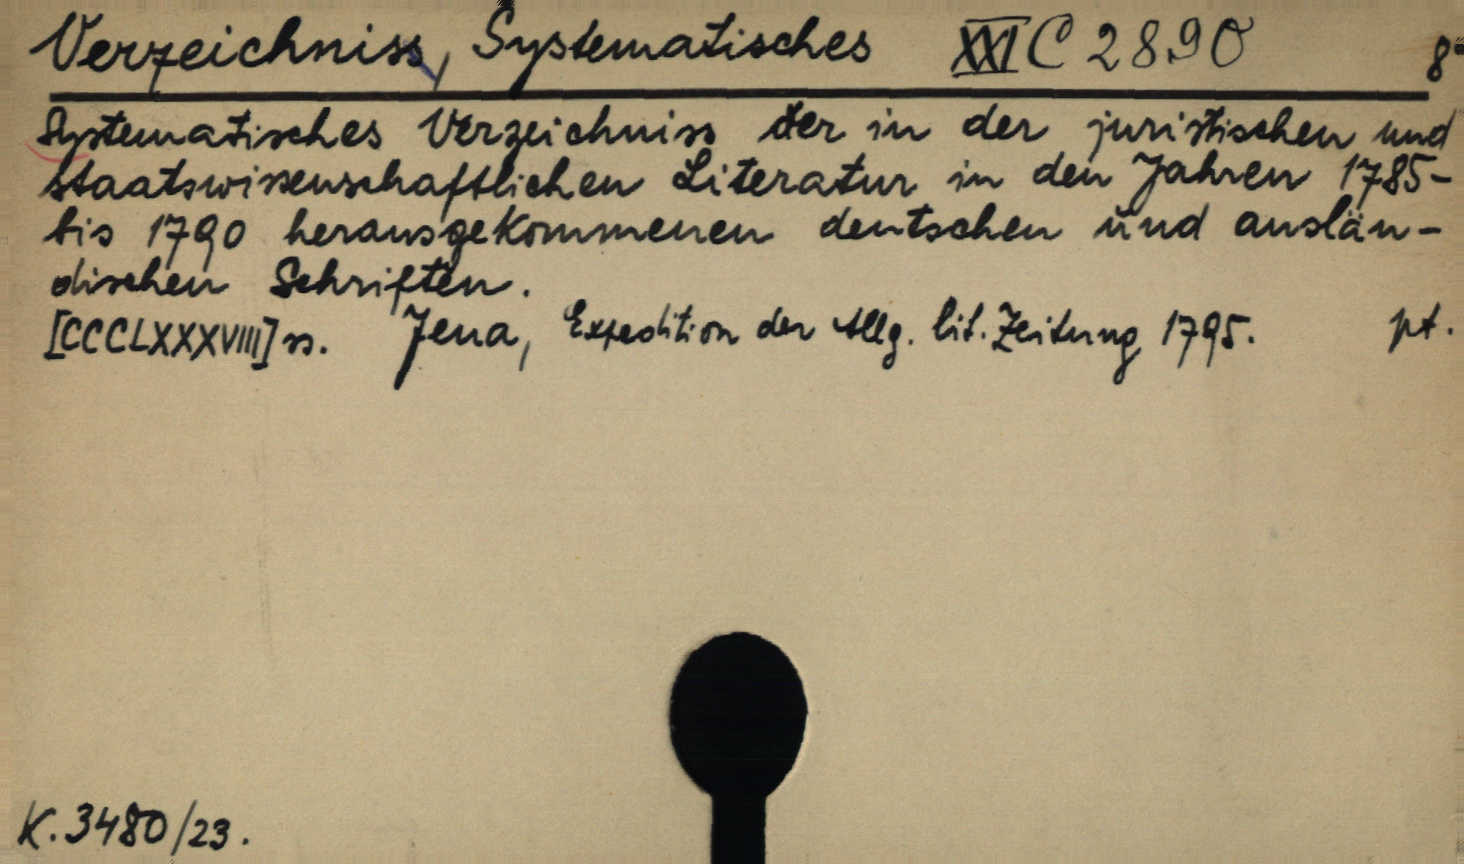 Verzeichniss, Systematisches XXI C 2890 8°
Systematisches Verzeichniss der in der juristischen und
staatswissenschaftlichen Literatur in den Jahren 1785-
bis 1790 herausgekommenen deutschen und auslän-
dischen Schriften.
[CCCLXXXVIIII] ss. Jena, Expedition der Allg. lit. Zeitung 1795. pt.
K. 3480/23.